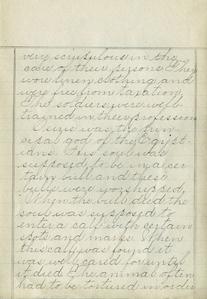 very scrupulous in the
care of their persons. They
wore linen clothing and
were free from taxation.
The soldiers were well
trained in their profession.
Osiris was the
god of the Egypt-
ians. This soul was
supposed to be in a cer-
tain bull and these
bulls were worshipped.
When the bull died the
soul was supposed to
enter a calf with certain
spots and marks. When
this calf was found it
was well cared for until
it died. The animal often
had to be tortured in order